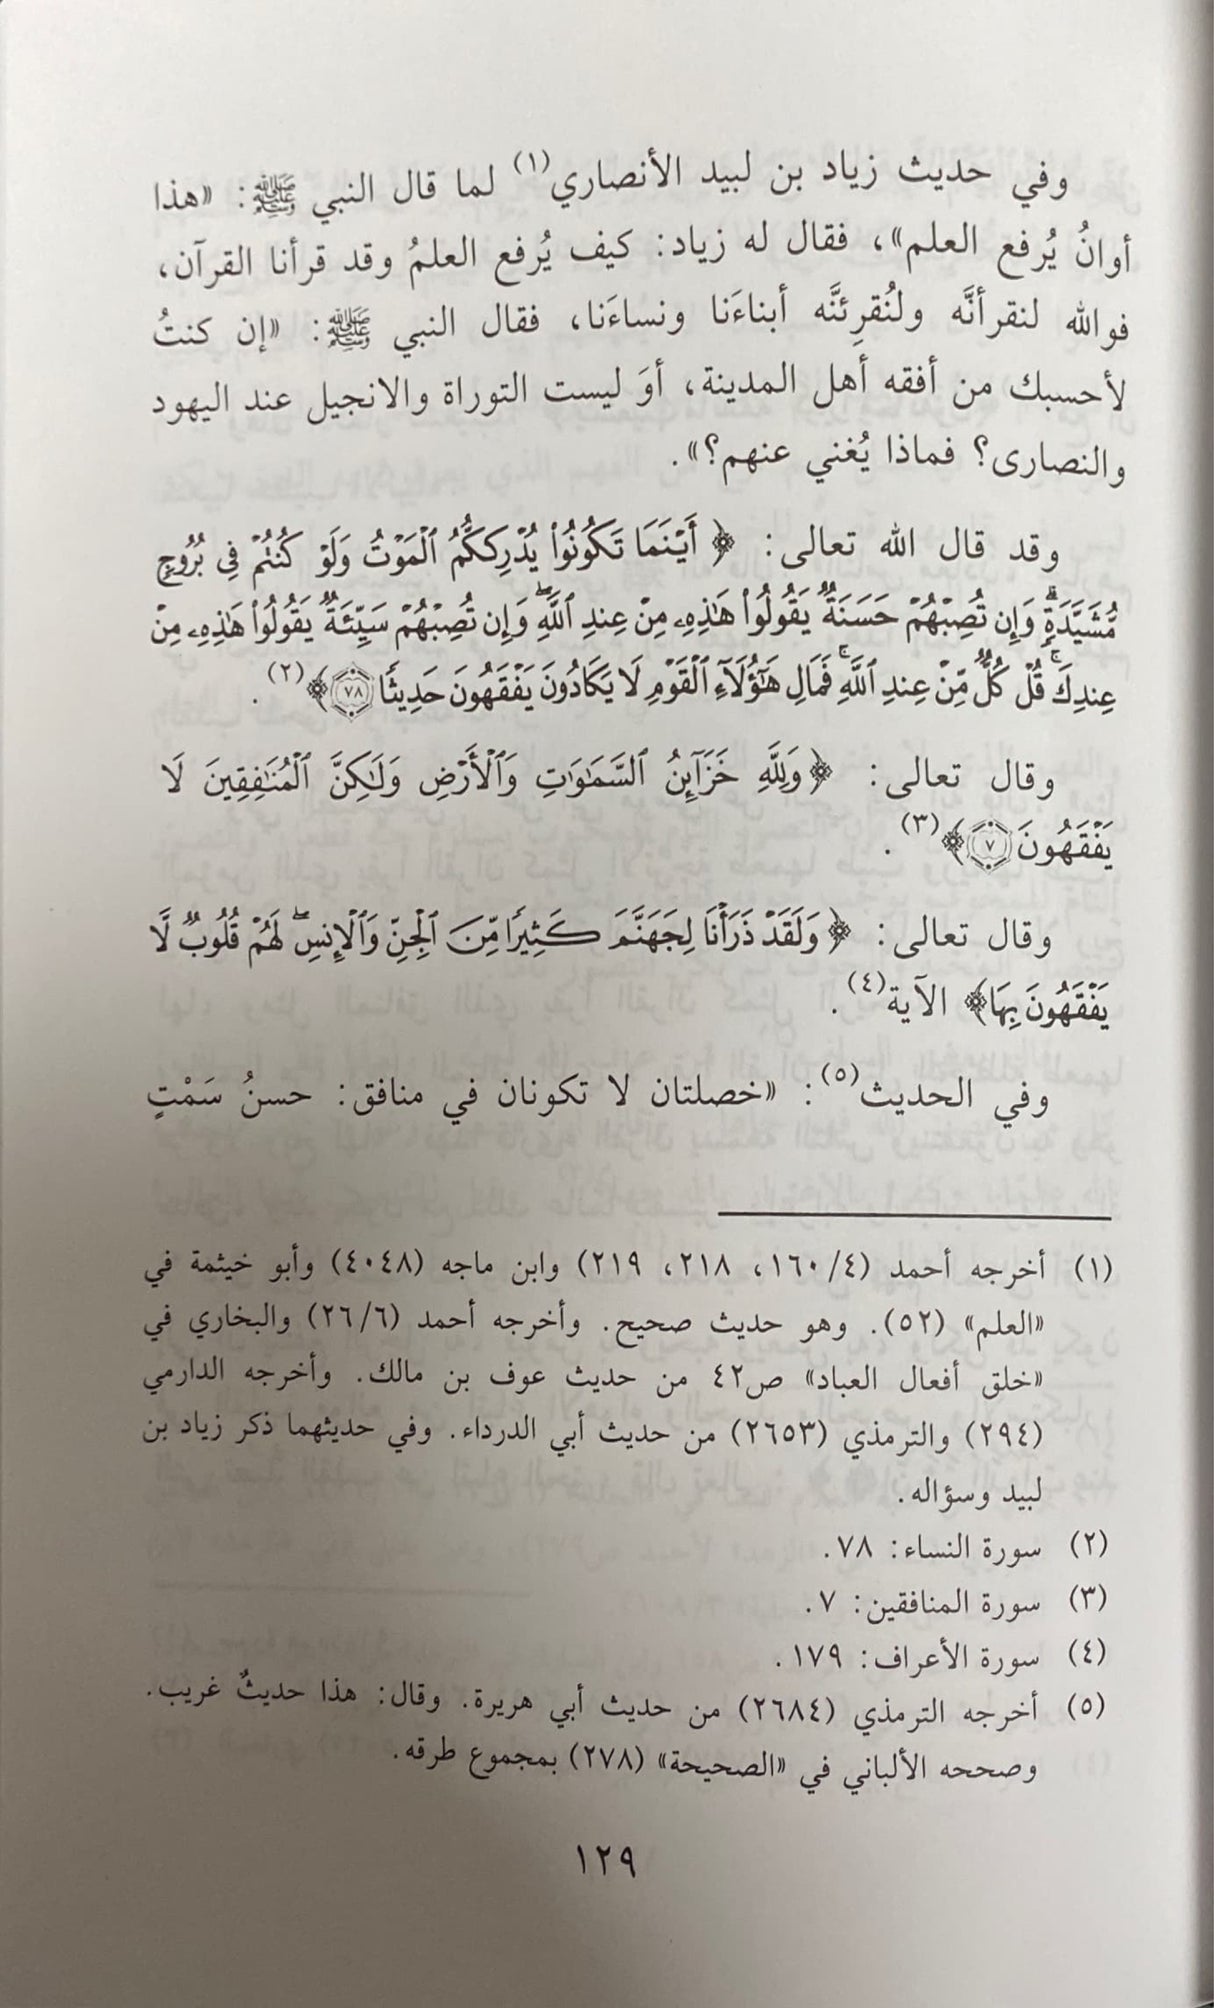 وفي حديث زياد بن لبيد الأنصاري(١) لما قال النبي ﷺ: «هذا
أوانُ يُرفع العلم»، فقال له زياد: كيف يُرفع العلمُ وقد قرأنا القرآن،
فوالله لنقرأنَّه ولنُقرِئنَّه أبناءَنا ونساءَنا، فقال النبي ﷺ: «إن كنتُ
لأحسبك من أفقه أهل المدينة، أوَ ليست التوراة والانجيل عند اليهود
والنصارى؟ فماذا يُغني عنهم؟».
وقد قال الله تعالى: ﴿أَيْنَمَا تَكُونُوا۟ يُدْرِككُّمُ ٱلْمَوْتُ وَلَوْ كُنتُمْ فِى بُرُوجٍ
مُّشَيَّدَةٍ ۗ وَإِن تُصِبْهُمْ حَسَنَةٌ يَقُولُوا۟ هَـٰذِهِۦ مِنْ عِندِ ٱللَّهِ ۖ وَإِن تُصِبْهُمْ سَيِّئَةٌ يَقُولُوا۟ هَـٰذِهِۦ مِنْ
عِندِكَ ۚ قُلْ كُلٌّ مِّنْ عِندِ ٱللَّهِ ۚ فَمَالِ هَـٰٓؤُلَآءِ ٱلْقَوْمِ لَا يَكَادُونَ يَفْقَهُونَ حَدِيثًا ٧٨﴾(٢).
وقال تعالى: ﴿وَلِلَّهِ خَزَآئِنُ ٱلسَّمَـٰوَٰتِ وَٱلْأَرْضِ وَلَـٰكِنَّ ٱلْمُنَـٰفِقِينَ لَا
يَفْقَهُونَ ٧﴾(٣).
وقال تعالى: ﴿وَلَقَدْ ذَرَأْنَا لِجَهَنَّمَ كَثِيرًا مِّنَ ٱلْجِنِّ وَٱلْإِنسِ ۖ لَهُمْ قُلُوبٌ لَّا
يَفْقَهُونَ بِهَا﴾ الآية(٤).
وفي الحديث(٥): «خصلتان لا تكونان في منافق: حسنُ سَمْتٍ
(١) أخرجه أحمد (٤/ ١٦٠، ٢١٨، ٢١٩) وابن ماجه (٤٠٤٨) وأبو خيثمة في
«العلم» (٥٢). وهو حديث صحيح. وأخرجه أحمد (٦/ ٢٦) والبخاري في
«خلق أفعال العباد» ص٤٢ من حديث عوف بن مالك. وأخرجه الدارمي
(٢٩٤) والترمذي (٢٦٥٣) من حديث أبي الدرداء. وفي حديثهما ذكر زياد بن
لبيد وسؤاله.
(٢) سورة النساء: ٧٨.
(٣) سورة المنافقين: ٧.
(٤) سورة الأعراف: ١٧٩.
(٥) أخرجه الترمذي (٢٦٨٤) من حديث أبي هريرة. وقال: هذا حديثٌ غريب.
وصححه الألباني في «الصحيحة» (٢٧٨) بمجموع طرقه.
١٢٩